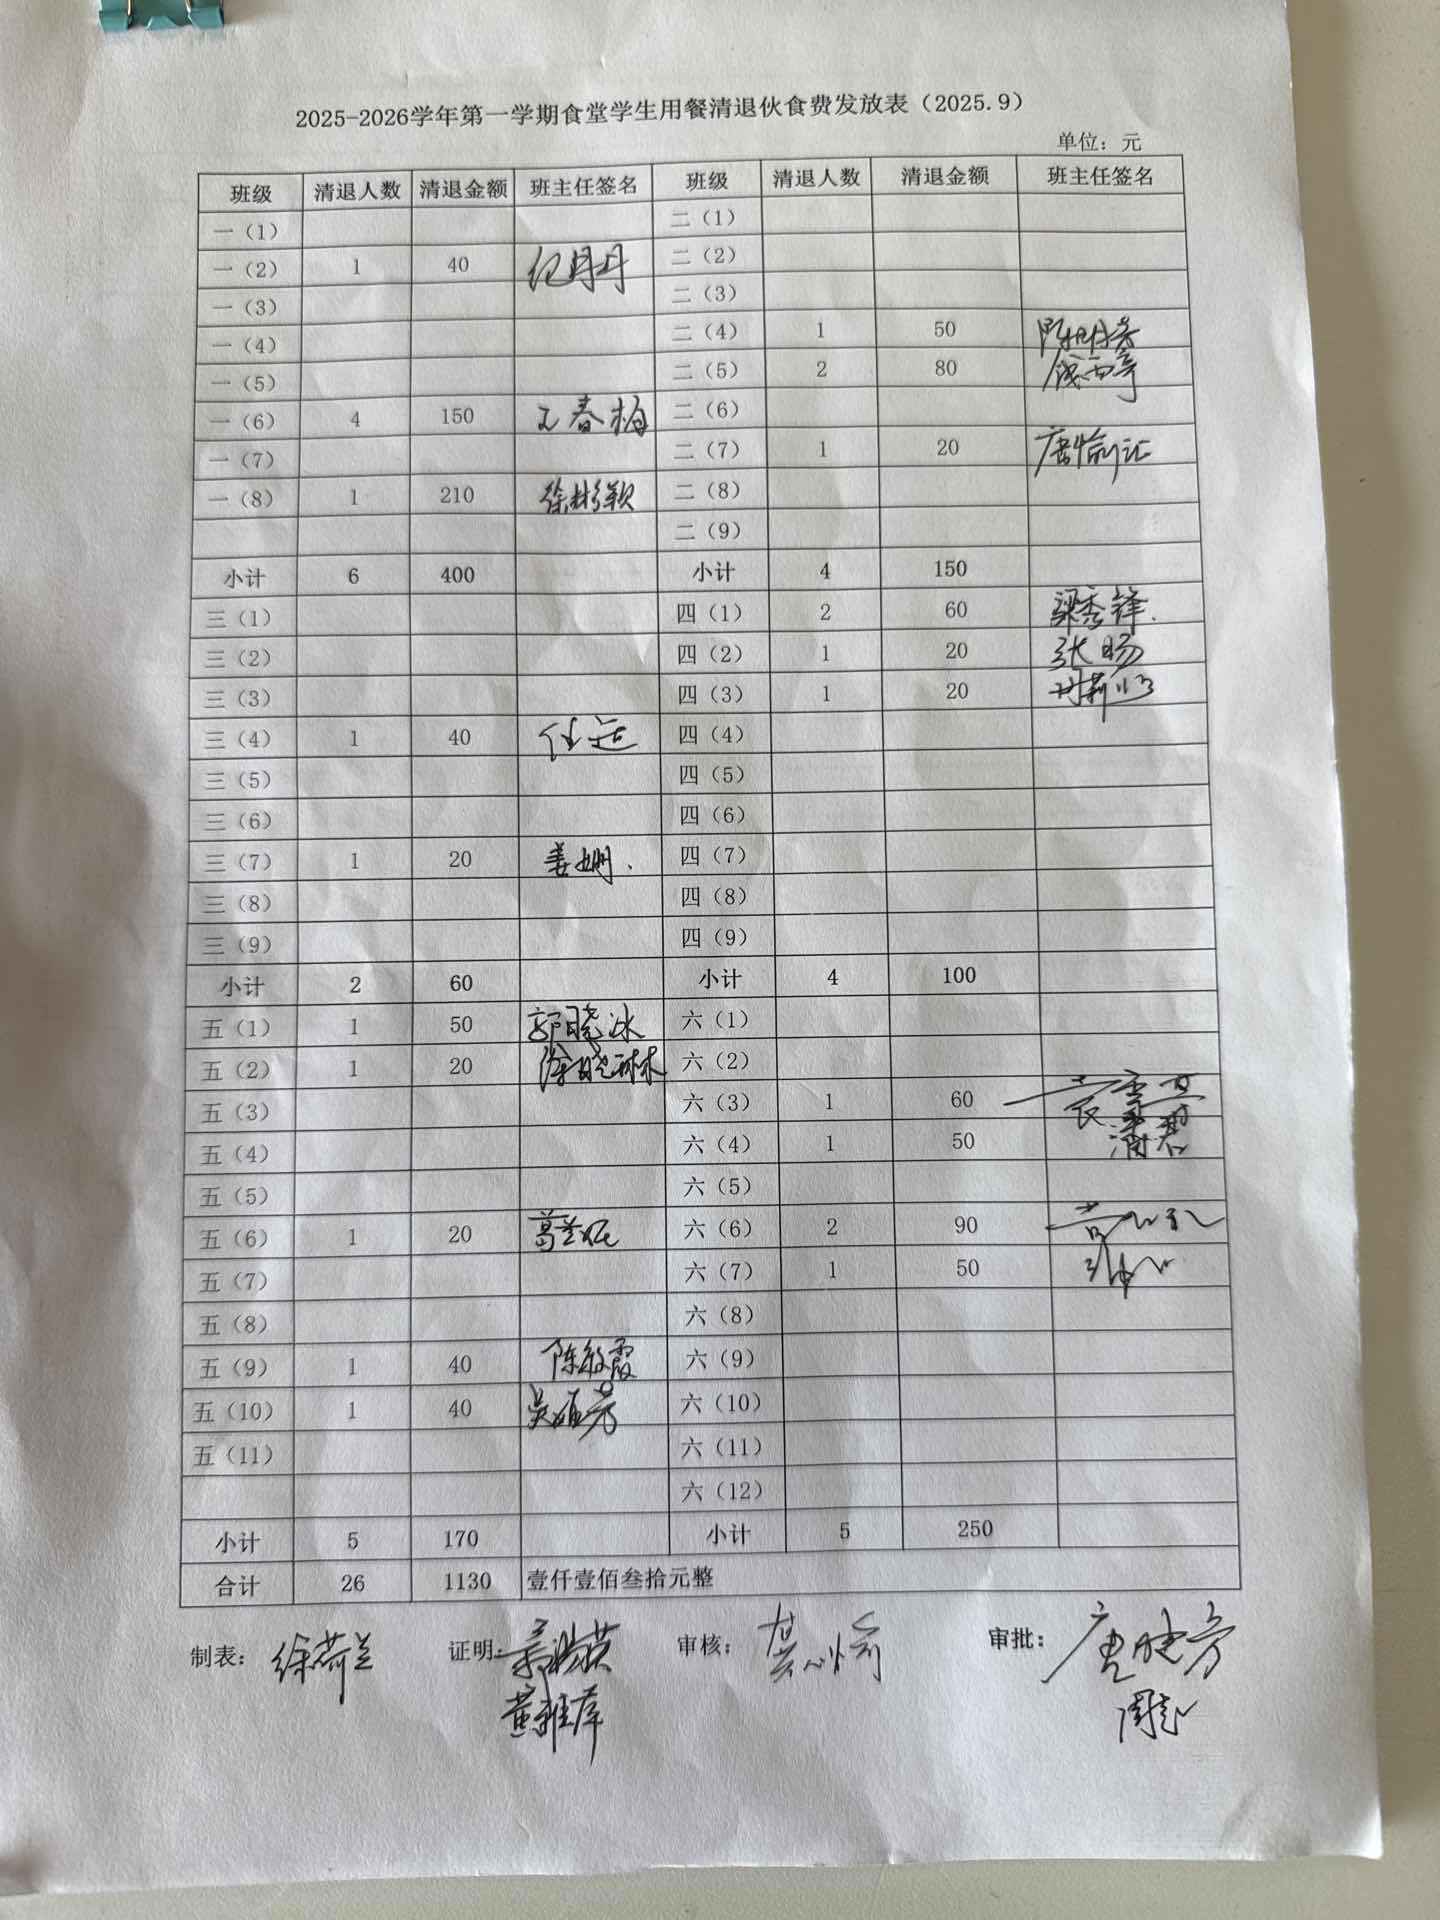 2025-2026学年第一学期食堂学生用餐清退伙食费发放表（2025.9）
单位：元
班级 清退人数 清退金额 班主任签名 班级 清退人数 清退金额 班主任签名
一（1） 二（1）
一（2） 1 40 纪丹丹 二（2）
一（3） 二（3）
一（4） 二（4） 1 50
一（5） 二（5） 2 80
一（6） 4 150 王春梅 二（6）
一（7） 二（7） 1 20 唐愉江
一（8） 1 210 徐彬颖 二（8）
二（9）
小计 6 400 小计 4 150
三（1） 四（1） 2 60 梁秀锋
三（2） 四（2） 1 20 张旸
三（3） 四（3） 1 20
三（4） 1 40 四（4）
三（5） 四（5）
三（6） 四（6）
三（7） 1 20 姜姗 四（7）
三（8） 四（8）
三（9） 四（9）
小计 2 60 小计 4 100
五（1） 1 50 郭晓冰 六（1）
五（2） 1 20 徐晓琳 六（2）
五（3） 六（3） 1 60
五（4） 六（4） 1 50
五（5） 六（5）
五（6） 1 20 六（6） 2 90
五（7） 六（7） 1 50
五（8） 六（8）
五（9） 1 40 陈敏霞 六（9）
五（10） 1 40 六（10）
五（11） 六（11）
六（12）
小计 5 170 小计 5 250
合计 26 1130 壹仟壹佰叁拾元整
制表：徐荷兰 证明： 审核： 审批：唐晓芳
黄雅萍